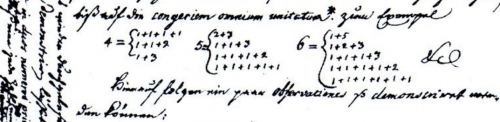 biß auf die congeriem omnium unitatum. zum Exempel
4 = { 1+1+1+1
1+1+2
1+3
5 = { 2+3
1+1+3
1+1+1+2
1+1+1+1+1
6 = { 1+5
1+2+3
1+1+1+3
1+1+1+1+2
1+1+1+1+1+1
&c
Hierauf folgen ein paar observationes so demonstriret werden
können: